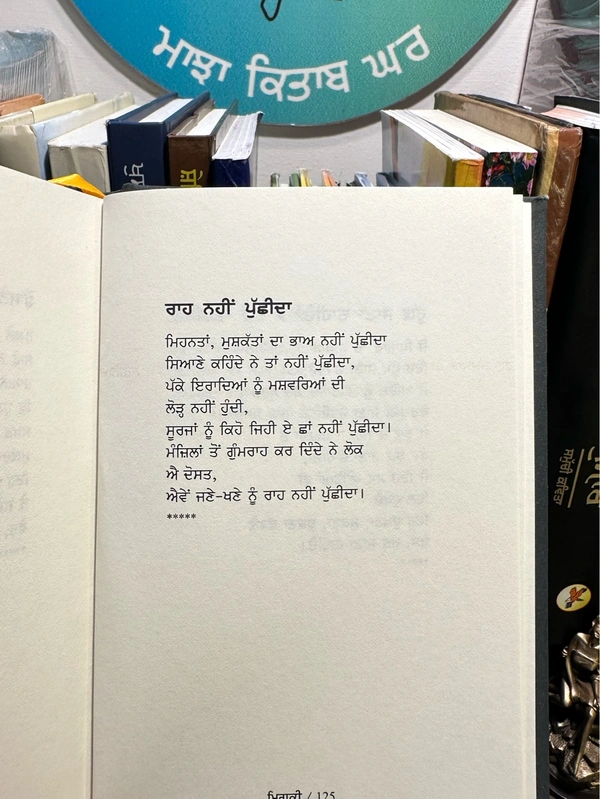 ਮਾਝਾ ਕਿਤਾਬ ਘਰ
ਰਾਹ ਨਹੀਂ ਪੁੱਛੀਦਾ
ਮਿਹਨਤਾਂ, ਮੁਸ਼ਕੱਤਾਂ ਦਾ ਭਾਅ ਨਹੀਂ ਪੁੱਛੀਦਾ
ਸਿਆਣੇ ਕਹਿੰਦੇ ਨੇ ਤਾਂ ਨਹੀਂ ਪੁੱਛੀਦਾ,
ਪੱਕੇ ਇਰਾਦਿਆਂ ਨੂੰ ਮਸ਼ਵਰਿਆਂ ਦੀ
ਲੋੜ੍ਹ ਨਹੀਂ ਹੁੰਦੀ,
ਸੂਰਜਾਂ ਨੂੰ ਕਿਹੋ ਜਿਹੀ ਏ ਛਾਂ ਨਹੀਂ ਪੁੱਛੀਦਾ।
ਮੰਜ਼ਿਲਾਂ ਤੋਂ ਗੁੰਮਰਾਹ ਕਰ ਦਿੰਦੇ ਨੇ ਲੋਕ
ਐ ਦੋਸਤ,
ਐਵੇਂ ਜਣੇ-ਖਣੇ ਨੂੰ ਰਾਹ ਨਹੀਂ ਪੁੱਛੀਦਾ।
*****
ਮਿਰਾਕੀ / 125